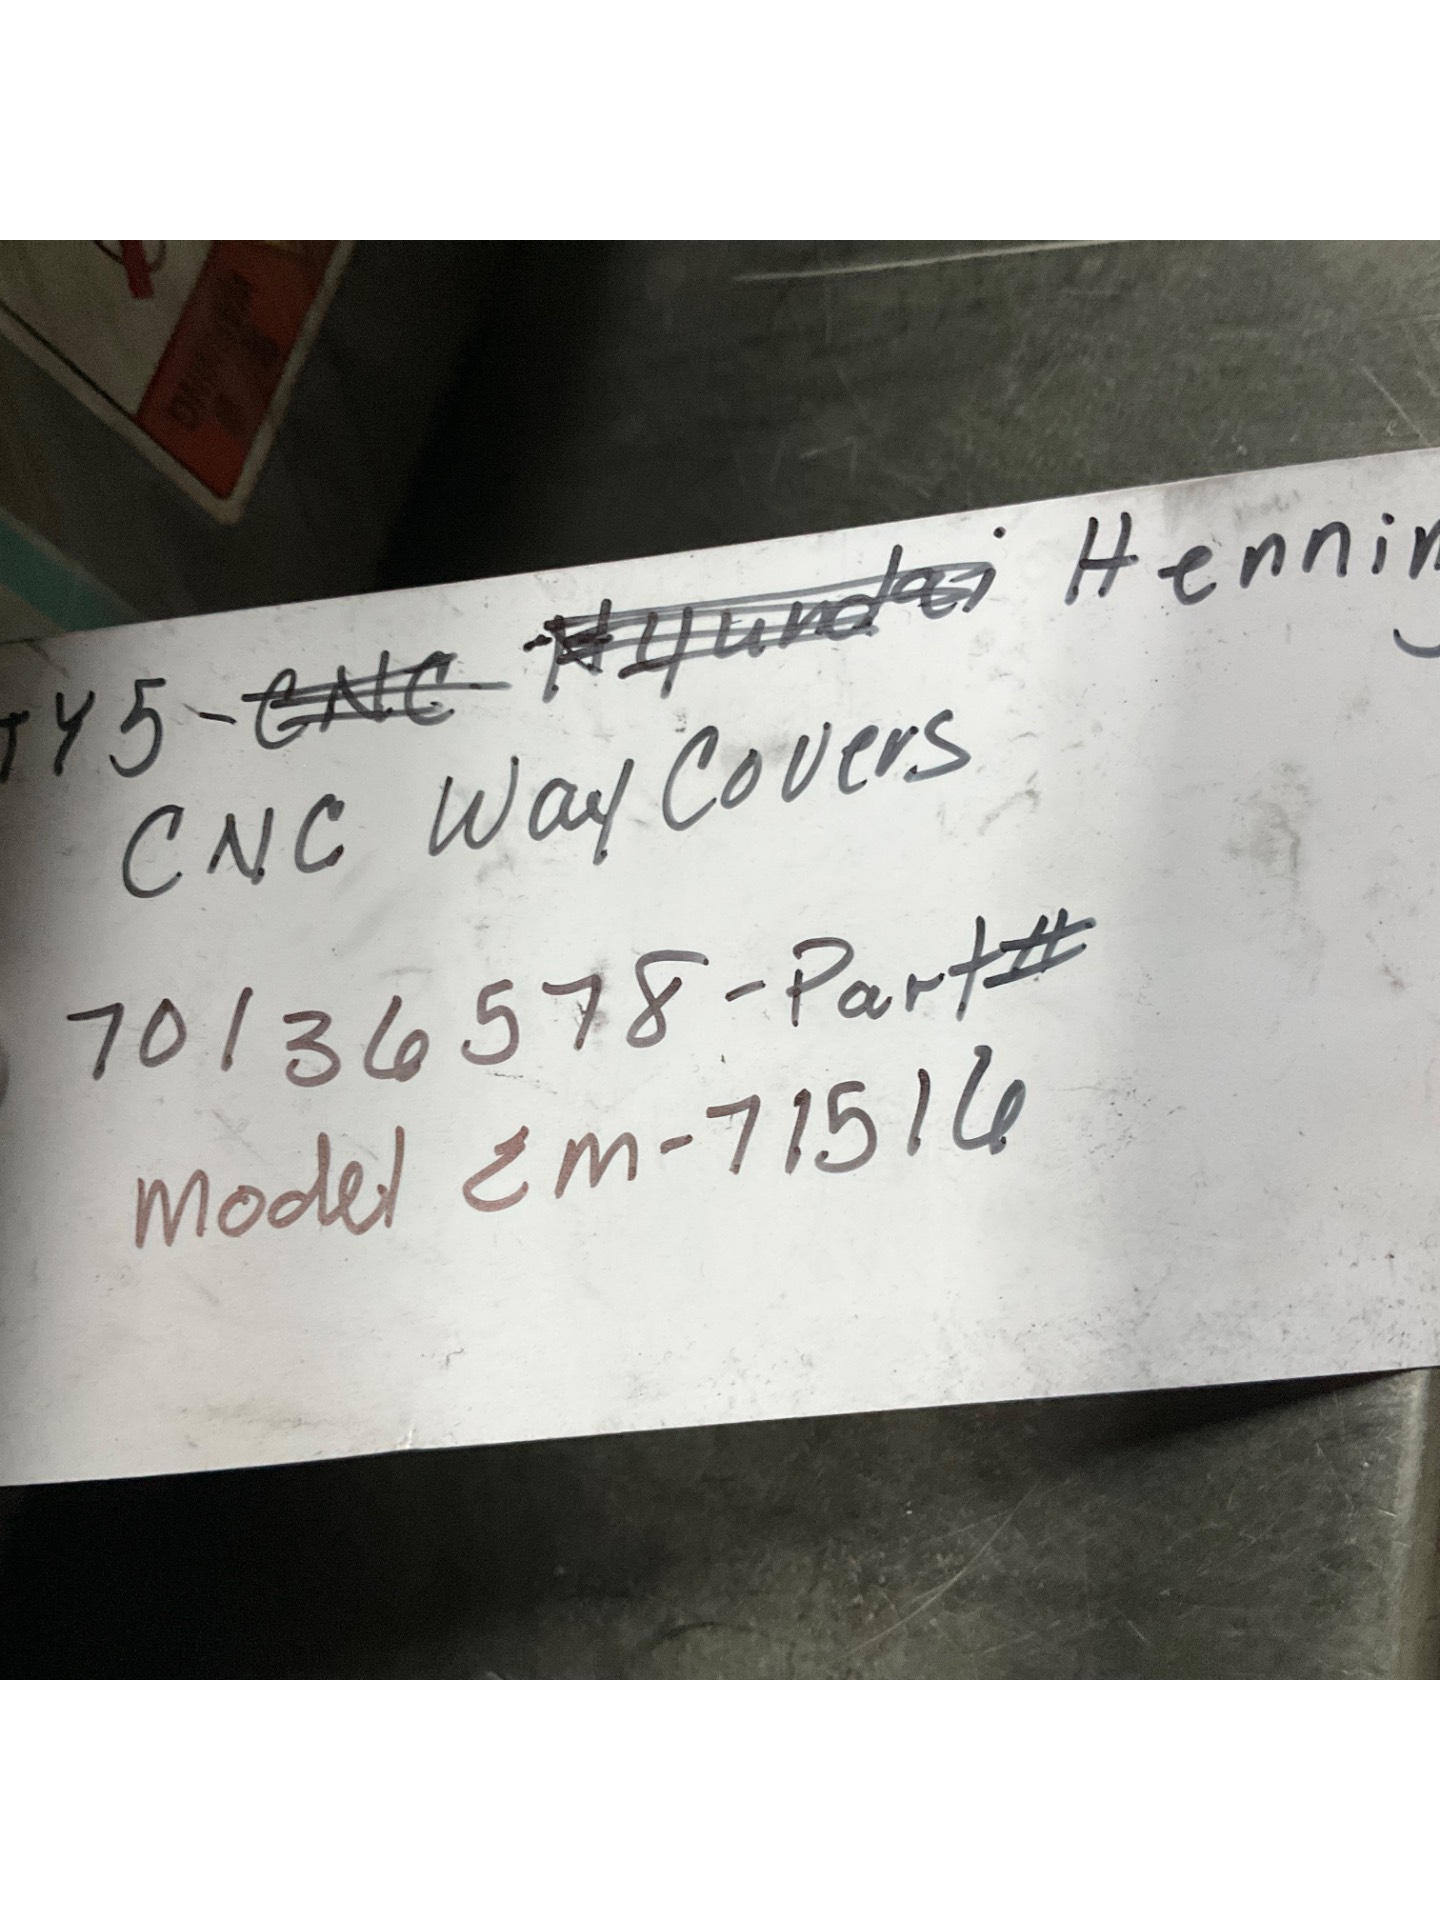 TY5-CNC-Hyundai Hennin
CNC Way Covers
70136578-Part#
Model Em-71516